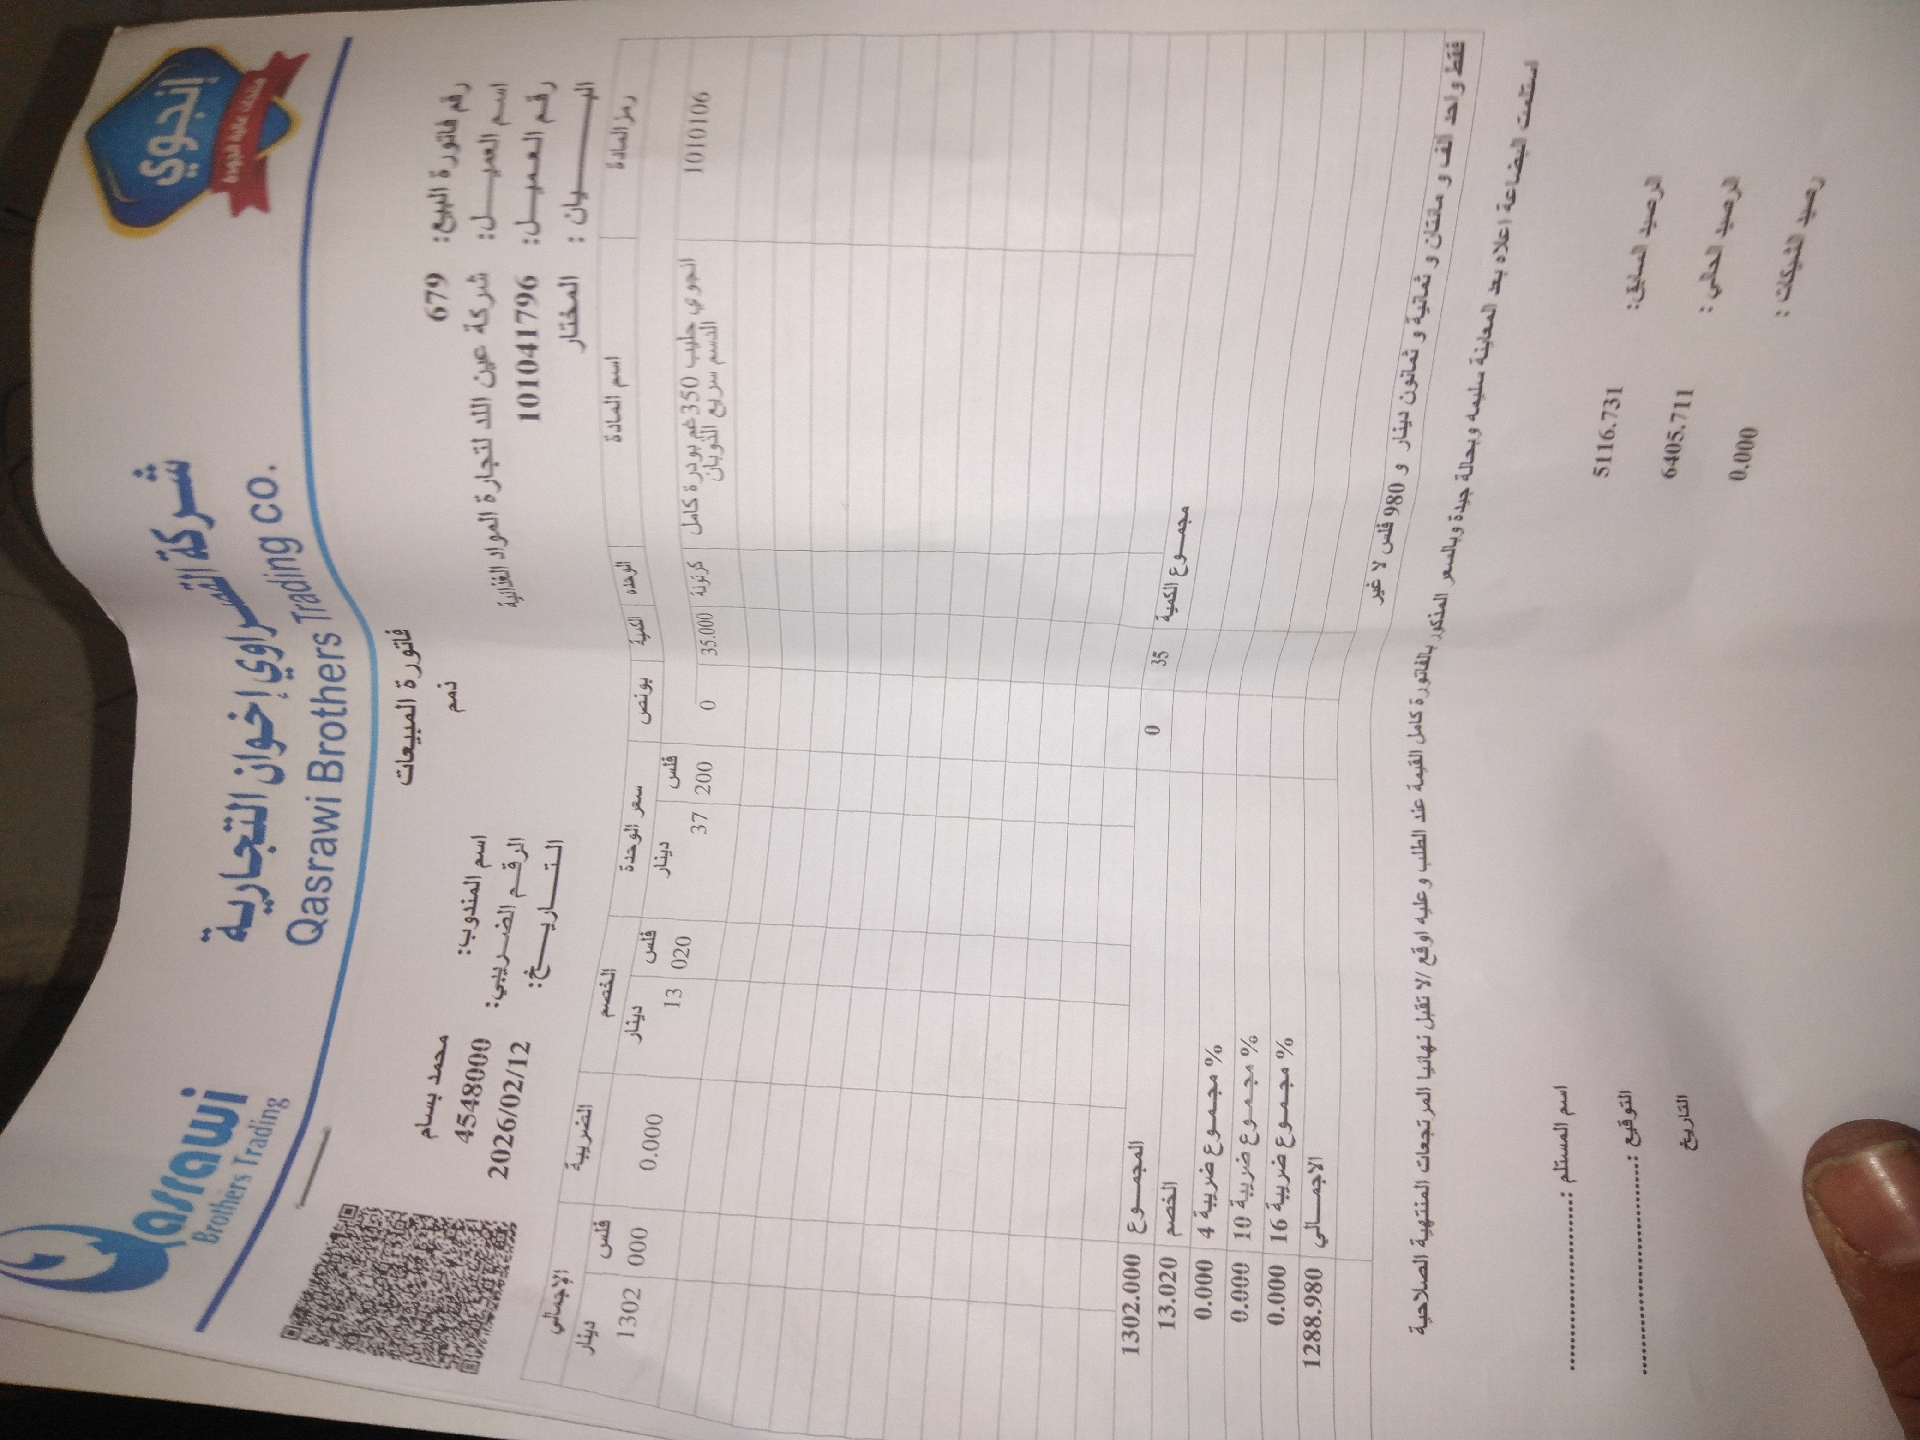 شركة القصراوي إخوان التجارية
Qasrawi Brothers Trading CO.
Qasrawi
Brothers Trading
إنجوي
منتجات عالية الجودة
فاتورة المبيعات
ذمم
رقم فاتورة البيع: 679
اسم العميـــل: شركة عين اللد لتجارة المواد الغذائية
رقم العميــل: 101041796
البـــــــيان : المختار
اسم المندوب: محمد بسام
الرقم الضريبي: 4548000
التـــاريــــخ: 2026/02/12
رمز المادة اسم المادة الوحده الكمية بونص سعر الوحدة الخصم الضريبة الإجمالي
دينار فلس دينار فلس دينار فلس
1010106 انجوي حليب 350غم بودرة كامل الدسم سريع الذوبان كرتونة 35.000 0 37 200 13 020 0.000 1302 000
مجمـــوع الكمية 35 0
المجمــوع 1302.000
الخصم 13.020
% مجمــوع ضريبة 4 0.000
% مجمــوع ضريبة 10 0.000
% مجمــوع ضريبة 16 0.000
الاجمـــالي 1288.980
فقط واحد الف و مائتان و ثمانية و ثمانون دينار و 980 فلس لا غير
استلمت البضاعة اعلاه بعد المعاينة سليمه وبحالة جيدة وبالسعر المذكور بالفاتورة كامل القيمة عند الطلب وعليه اوقع /لا تقبل نهائيا المرتجعات المنتهية الصلاحية
الرصيد السابق: 5116.731
الرصيد الحالي : 6405.711
رصيد الشيكات : 0.000
اسم المستلم :..........................
التوقيع :................................
التاريخ